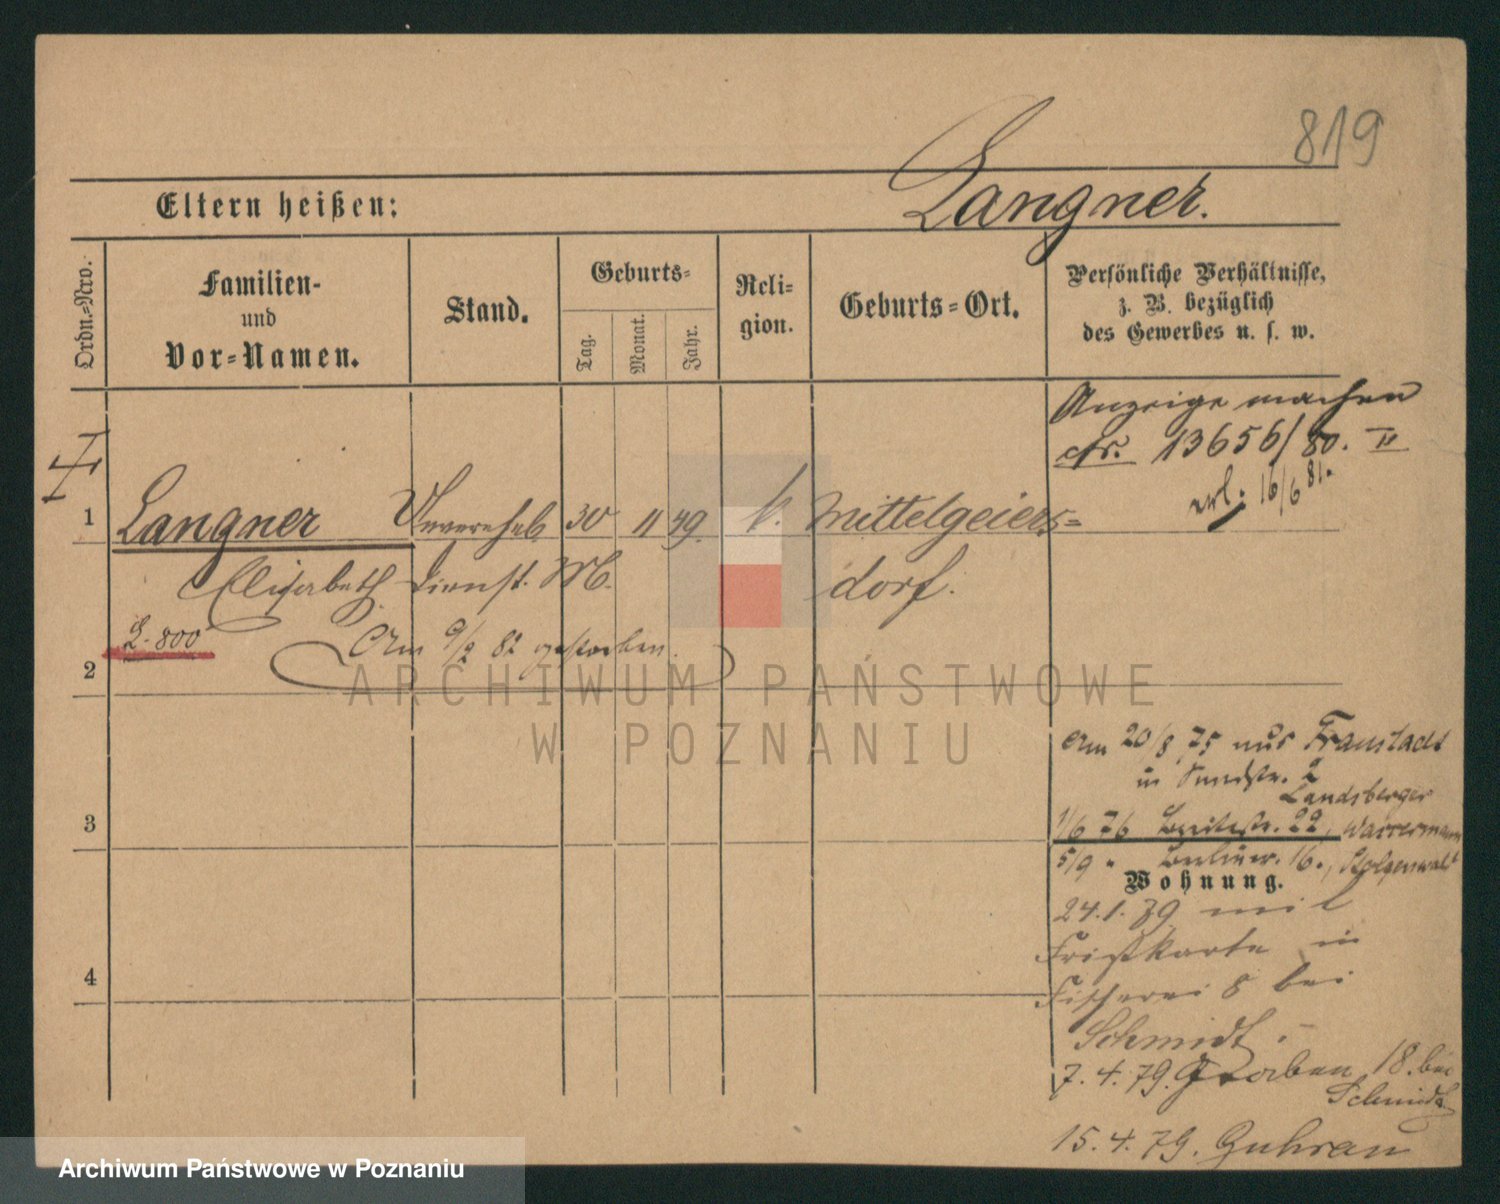 819
Eltern heißen:
Langner.
Ordn.-Nro.
Familien-
und
Vor-Namen.
Stand.
Geburts-
Tag.
Monat.
Jahr.
Reli-
gion.
Geburts-Ort.
Persönliche Verhältnisse,
z. B. bezüglich
des Gewerbes u. s. w.
Anzeige machen
cfr. 13656/80. II
16/6 81.
1
Langner
Unverehel.
30
11
49.
k.
Mittelgeiers-
Elisabeth.
Dienst. M.
dorf.
2
L. 800
Am 9/2 82 gestorben.
Am 20/8 75 aus Fraustadt
in 2
Landsberger
3
1/6 76 Breitestr. 22, Wassermann
5/9 " Berliner. 16.,
Wohnung.
24.1.79 mit
4
Fristkarte in
Fischerei 8 bei
Schmidt.
7.4.79. Graben 18. bei
Schmidt
15.4.79. Guhrau
ARCHIWUM PAŃSTWOWE
W POZNANIU
Archiwum Państwowe w Poznaniu